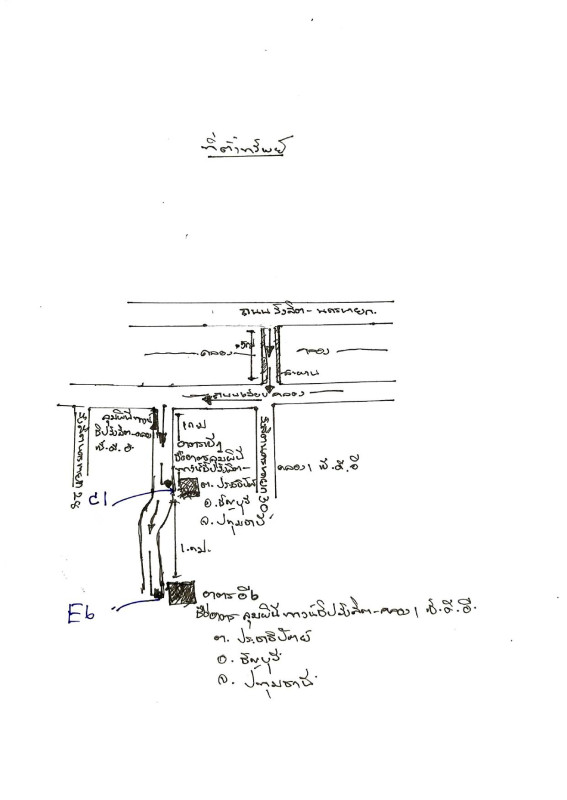 ที่ตั้งทรัพย์
ถนน รังสิต - นครนายก.
คลอง
คลอง
สะพาน
ถนนเลียบคลอง
ลุมพินี ทาวน์
ชิปรังสิต-คลอง
ซี.ดี.อี
1 กม
อาคารซี1
ชื่ออาคารลุมพินี
ทาวน์ชิปรังสิต-
คลอง 1 ซี.ดี.อี
ต. ประชาธิปัตย์
อ. ธัญบุรี
จ. ปทุมธานี
รังสิตนครนายก 28
รังสิตนครนายก 30
C1
1. กม.
E6
อาคาร อี6
ชื่ออาคาร ลุมพินี ทาวน์ชิปรังสิต-คลอง 1 ซี.ดี.อี.
ต. ประชาธิปัตย์
อ. ธัญบุรี
จ. ปทุมธานี